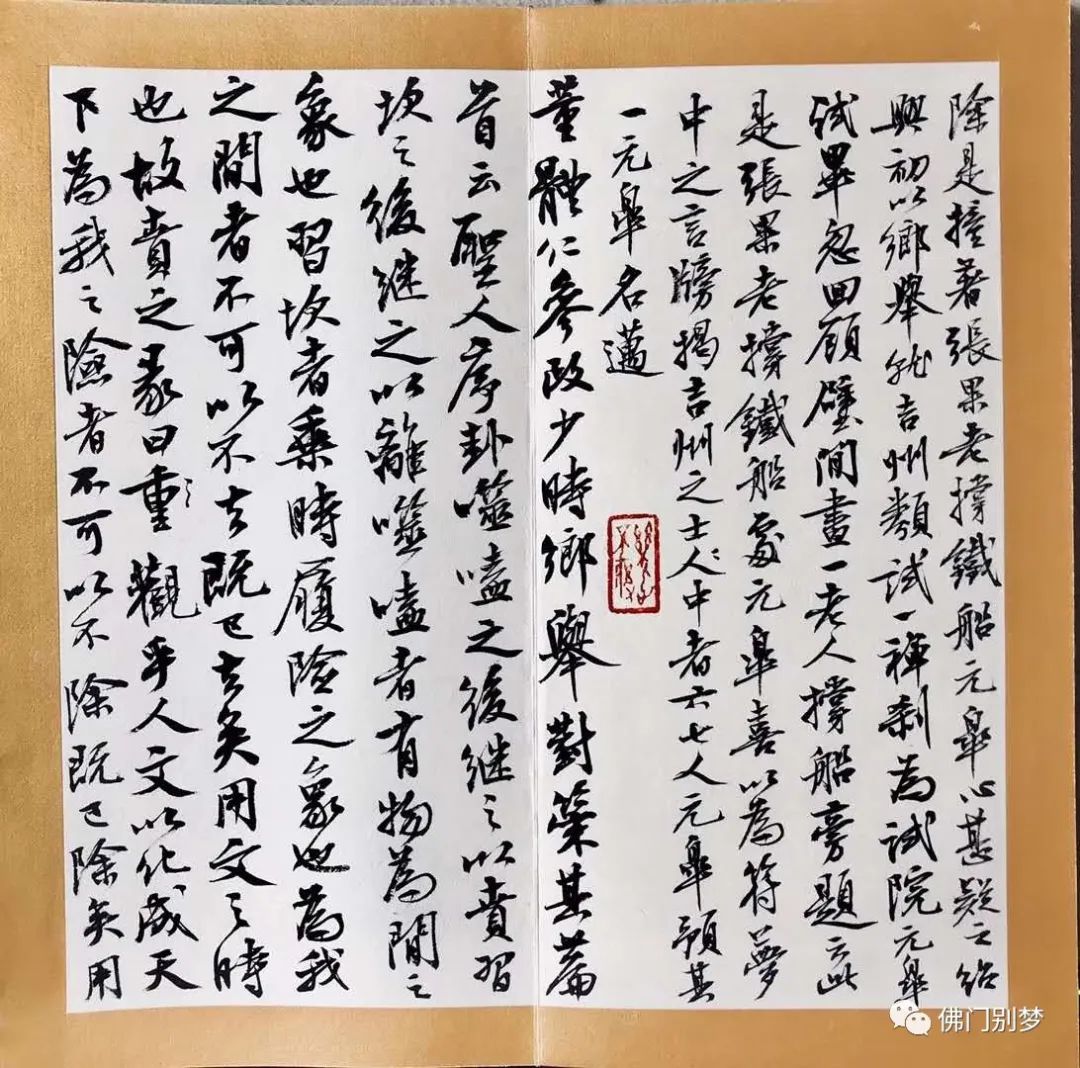 除是撞著張果老撐鐵船元皐心甚疑之紹
興初以鄉舉就吉州類試一禅刹為試院元皐
試畢忽回顧壁間畫一老人撐船旁題云此
是張果老撐鐵船處元皐喜以為符夢
中之言牓揭吉州之士人〻中者六七人元皐預其
一元皐名邁
董體仁參政少時鄉舉對策其篇
首云聖人序卦噬嗑之後继之以賁習
坎之後继之以離噬嗑者有物為間之
象也習坎者乘時履險之象也為我
之間者不可以不去既已去矣用文之時
也故賁之彖曰重〻觀乎人文以化成天
下為我之險者不可以不除既已除矣用
佛门别梦